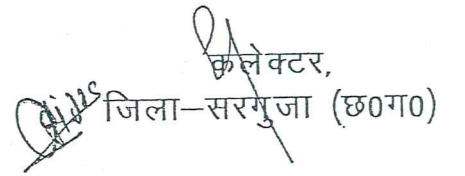 कलेक्टर,
जिला–सरगुजा (छ0ग0)